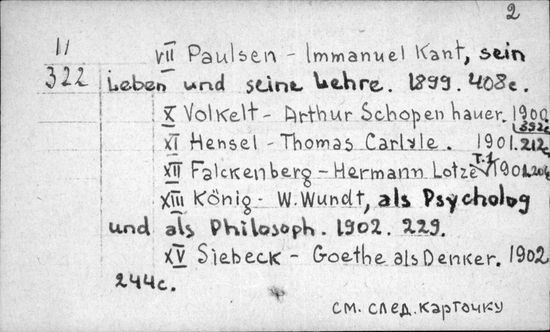 2
11
322
VII Paulsen - Immanuel Kant, sein
Leben und seine Lehre. 1899. 408c.
X Volkelt - Arthur Schopenhauer. 1900
392c
XI Hensel - Thomas Carlyle. 1901. 212c
XII Falckenberg - Hermann Lotze T.1 1901.
XIII König - W. Wundt, als Psycholog
und als Philosoph. 1902. 229.
XV Siebeck - Goethe als Denker. 1902
244c.
см. след. карточку